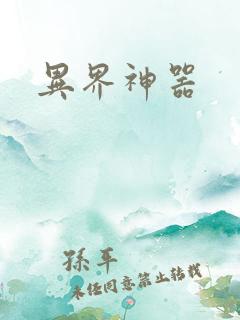 異界神器
孫平
未經同意禁止轉載